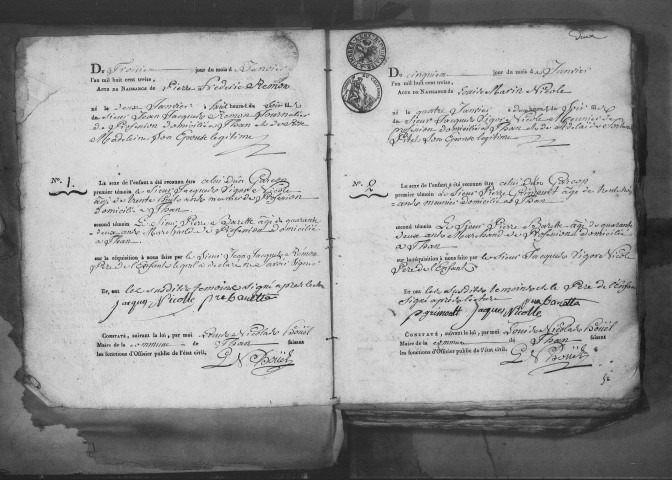 Du Troisième jour du mois de Janvier
l'an mil huit cent treize,
Acte de Naissance de Pierre Frédéric Remon
né le deux Janvier à huit heures du soir
du Sieur Jean Jacques Remon
de Profession domicilié à Than et de
Madelein son Epouse legitime
N.º 1.
Le sexe de l'enfant a été reconnu être celui d'un Garçon
premier témoin le Sieur Jacques Vigor Nicolle
âgé de trente ans de Profession
domicilié à Than
second témoin Le Sieur Pierre Barette âgé de quarante
deux ans Marchand de Profession domicilié
à Than
sur la réquisition à nous faite par le Sieur Jean Jacques Remon
Père de l'Enfant
Et, ont les susdits temoins signé après lecture
jacques Nicolle pre barette
Constaté, suivant la loi, par moi Louis Nicolas Boüel
Maire de la commune de Than faisant
les fonctions d'Officier public de l'état civil,
L N Boüel
deux
Du cinquième jour du mois de Janvier
l'an mil huit cent treize,
Acte de Naissance de Marin Nicole
né le quatre Janvier heures du Soir
du Sieur Jacques Vigor Nicole Meunier de
profession domicilié à Than et de
son Epouse legitime
N.º 2.
Le sexe de l'enfant a été reconnu être celui d'un Garçon
premier témoin le Sieur Pierre âgé de trente
ans meunier domicilié à Than
second témoin Le Sieur Pierre Barette âgé de quarante
deux ans Marchand de Profession domicilié
à Than
sur la réquisition à nous faite par le Sieur Jacques Vigor Nicole
Père de l'Enfant
Et, ont les susdits temoins et le Père de l'Enfant
signé après lecture
jacques Nicolle pre barette
Constaté, suivant la loi, par moi Louis Nicolas Boüel
Maire de la commune de Than faisant
les fonctions d'Officier public de l'état civil,
L N Boüel